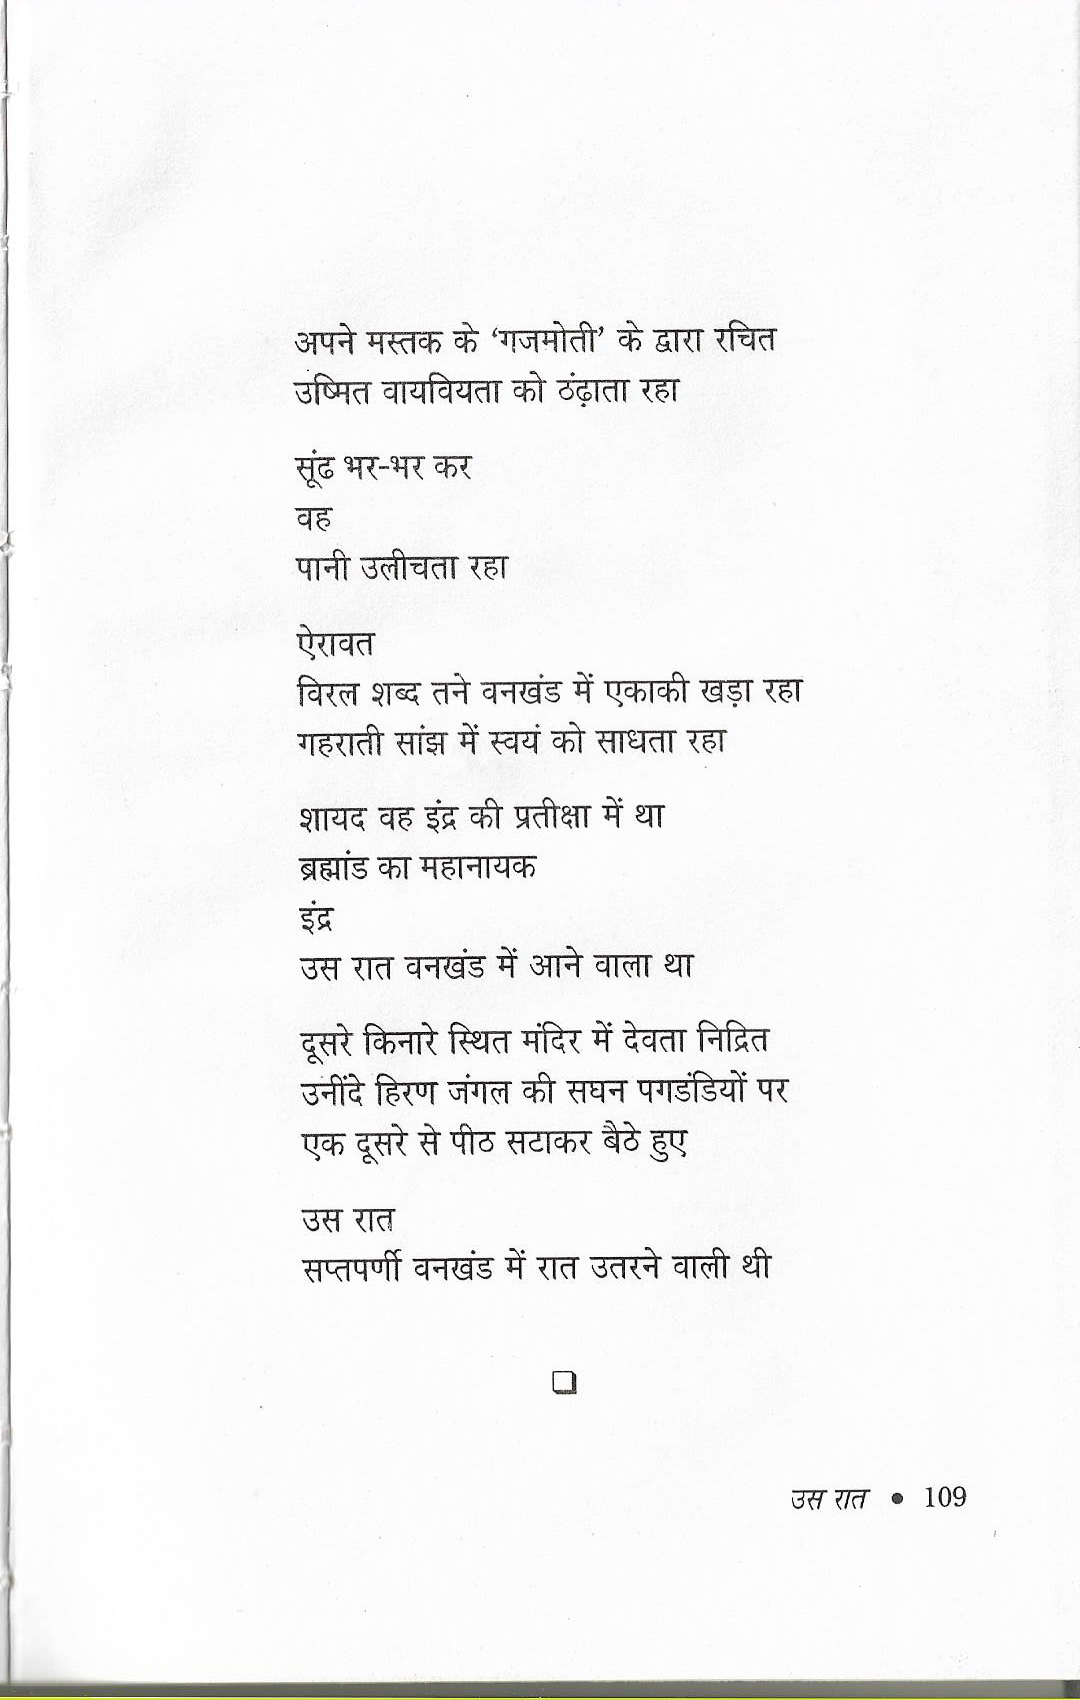 अपने मस्तक के ‘गजमोती’ के द्वारा रचित
उष्मित वायवियता को ठंढ़ाता रहा
सूंढ भर-भर कर
वह
पानी उलीचता रहा
ऐरावत
विरल शब्द तने वनखंड में एकाकी खड़ा रहा
गहराती सांझ में स्वयं को साधता रहा
शायद वह इंद्र की प्रतीक्षा में था
ब्रह्मांड का महानायक
इंद्र
उस रात वनखंड में आने वाला था
दूसरे किनारे स्थित मंदिर में देवता निद्रित
उनींदे हिरण जंगल की सघन पगडंडियों पर
एक दूसरे से पीठ सटाकर बैठे हुए
उस रात
सप्तपर्णी वनखंड में रात उतरने वाली थी
उस रात • 109